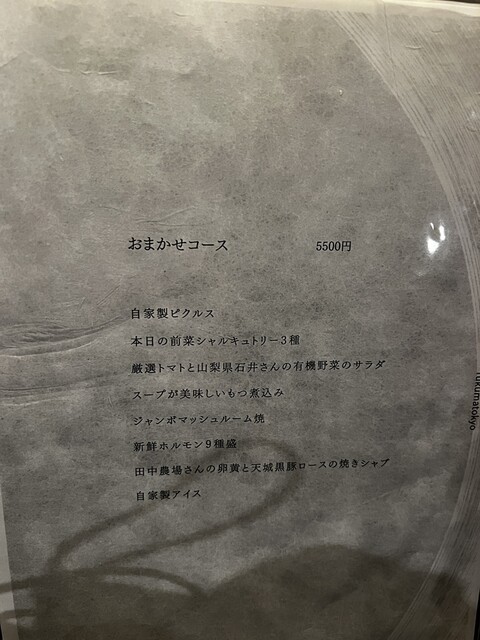 おまかせコース 5500円
自家製ピクルス
本日の前菜シャルキュトリー3種
厳選トマトと山梨県石井さんの有機野菜のサラダ
スープが美味しいもつ煮込み
ジャンボマッシュルーム焼
新鮮ホルモン9種盛
田中農場さんの卵黄と天城黒豚ロースの焼きシャブ
自家製アイス